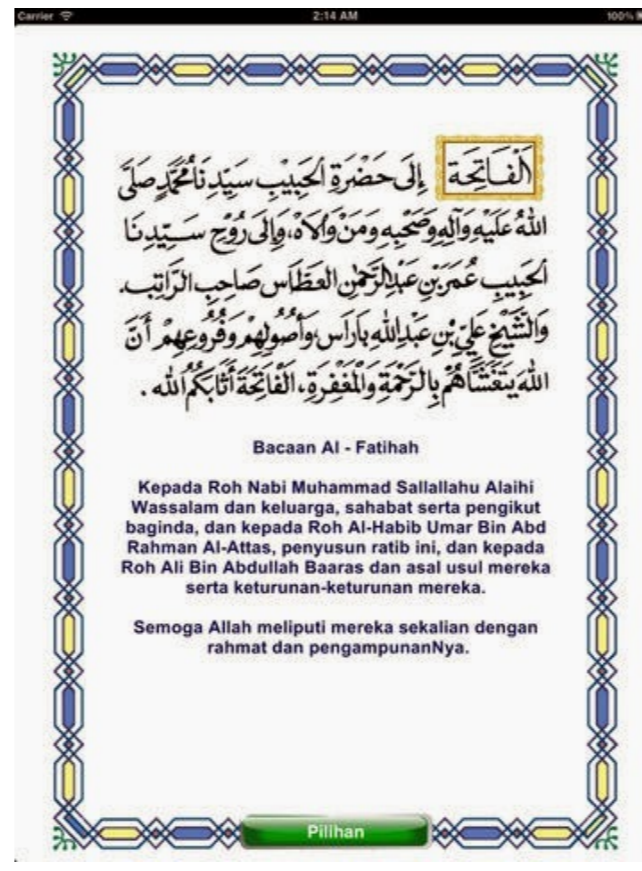 Carrier 2:14 AM 100%
اَلْفَاتِحَة إِلَى حَضْرَةِ الْحَبِيْبِ سَيِّدِنَا مُحَمَّدٍ صَلَّى
اللهُ عَلَيْهِ وَآلِهِ وَصَحْبِهِ وَمَنْ وَالَاهُ، وَإِلَى رُوْحِ سَيِّدِنَا
الْحَبِيبِ عُمَرَ بْنِ عَبْدِالرَّحْمٰنِ العَطَّاس صَاحِبِ الرَّاتِب.
وَالشَّيْخِ عَلِيِّ بْنِ عَبْدِاللهِ بَارَاس، وَأُصُولِهِمْ وَفُرُوعِهِمْ أَنَّ
اللهَ يَتَغَشَّاهُمْ بِالرَّحْمَةِ وَالْمَغْفِرَةِ، الْفَاتِحَةَ أَثَابَكُمُ الله .
Bacaan Al - Fatihah
Kepada Roh Nabi Muhammad Sallallahu Alaihi
Wassalam dan keluarga, sahabat serta pengikut
baginda, dan kepada Roh Al-Habib Umar Bin Abd
Rahman Al-Attas, penyusun ratib ini, dan kepada
Roh Ali Bin Abdullah Baaras dan asal usul mereka
serta keturunan-keturunan mereka.
Semoga Allah meliputi mereka sekalian dengan
rahmat dan pengampunanNya.
Pilihan